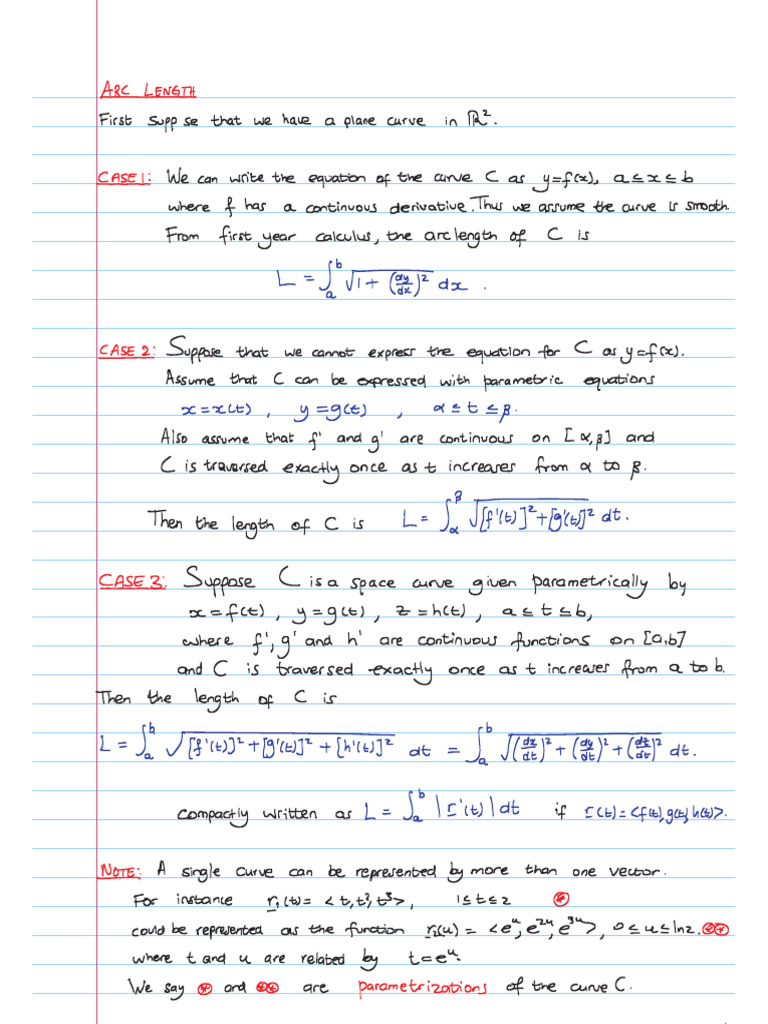 ARC LENGTH
First suppse that we have a plane curve in ℝ².
CASE 1: We can write the equation of the curve C as y=f(x), a≤x≤b
where f has a continuous derivative. Thus we assume the curve is smooth.
From first year calculus, the arc length of C is
L = ∫_a^b √(1 + (dy/dx)²) dx .
CASE 2: Suppose that we cannot express the equation for C as y=f(x).
Assume that C can be expressed with parametric equations
x=x(t) , y=g(t) , α≤t≤β.
Also assume that f' and g' are continuous on [α,β] and
C is traversed exactly once as t increases from α to β.
Then the length of C is L = ∫_α^β √([f'(t)]²+[g'(t)]²) dt.
CASE 3: Suppose C is a space curve given parametrically by
x=f(t) , y=g(t) , z=h(t) , a≤t≤b,
where f', g' and h' are continuous functions on [a,b]
and C is traversed exactly once as t increases from a to b.
Then the length of C is
L = ∫_a^b √([f'(t)]²+[g'(t)]²+[h'(t)]²) dt = ∫_a^b √((dx/dt)²+(dy/dt)²+(dz/dt)²) dt.
compactly written as L = ∫_a^b |r'(t)| dt if r(t)=<f(t),g(t),h(t)>.
NOTE: A single curve can be represented by more than one vector.
For instance r₁(t)= <t, t², t³>, 1≤t≤2 ⊛
could be represented as the function r₂(u) = <e^u, e^2u, e^3u>, 0≤u≤ln2. ⊛⊛
where t and u are related by t=e^u.
We say ⊛ and ⊛⊛ are parametrizations of the curve C.